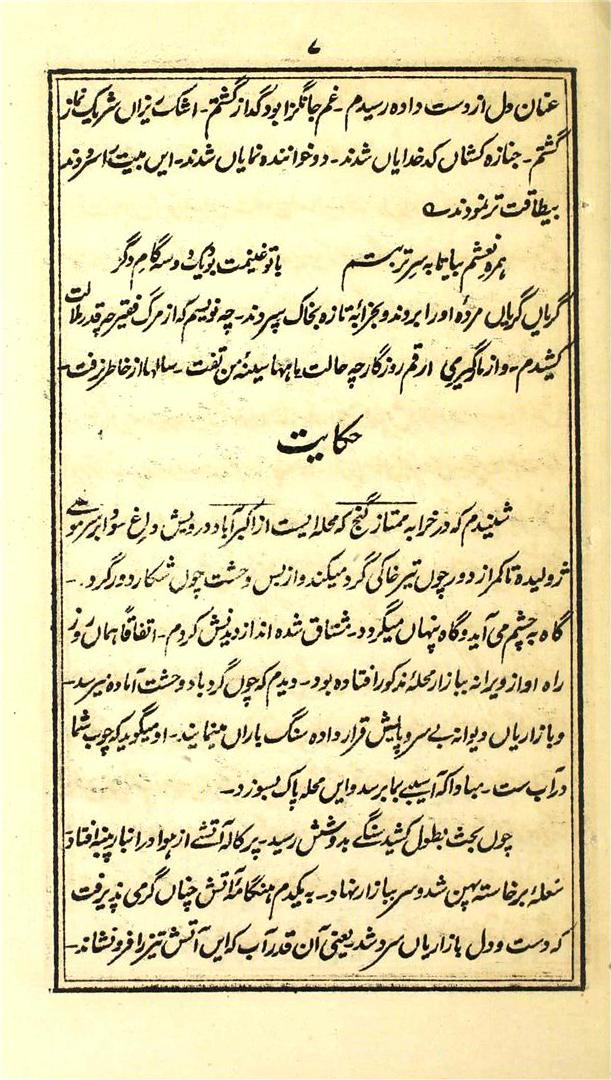 ۷
عنان دل از دست داده رسیدم - غم جانگزا بود گداز گشتم - اشک ریزاں شریک نماز
گشتم - جنازه کشاں کد خدایاں شدند - دو خواننده نمایاں شدند - ایں بیت را سرودند
بیطاقت تر نمودند
همره نعشم بیا تا به سر تربتم باتو غنیمت بود یک دو سه گام دگر
گریاں گریاں مرده او را بردند و بخرابهٔ تازه بخاک سپردند - چه نویسم که از مرگ فقیر چه قدر ملالت
کشیدم - و از رقم روزگار چه حالت یا بها سینهٔ من تفت - سالها از خاطر نرفت -
حکایت
شنیدم که در خرابه ممتاز گنج که محله ایست از اکبرآباد درویش داغ سودا بر سر موی
ژولیده تا کمر از دور چوں تیر خاکی گرد میکند و از بس وحشت چوں شکار دور گرد -
گاه به چشم می آید و گاه پنهاں میگردد - مشتاق شده انداز دیدنش کردم - اتفاقاً هماں روز
راه او از ویرانه ببازار محلهٔ مذکور افتاده بود - دیدم که چوں گردباد وحشت آماده میرسد -
و بازاریاں دیوانه بے سروپایش قرار داده سنگ باراں مینمایند - او میگوید که چوب شما
در آب ست - مبادا که آسیبے بما برسد و ایں محله پاک بسوزد -
چوں بحث بطول کشید سنگے بدوشش رسید - پرکاله آتشے از هوا در انبار پنبه افتاد
شعله برخاسته پهن شد و سر ببازار نهاد - به یکدم هنگامهٔ آتش چناں گرمی پذیرفت
که دست و دل بازاریاں سرد شد یعنی آں قدر آب که ایں آتش تیز را فرو نشاند -